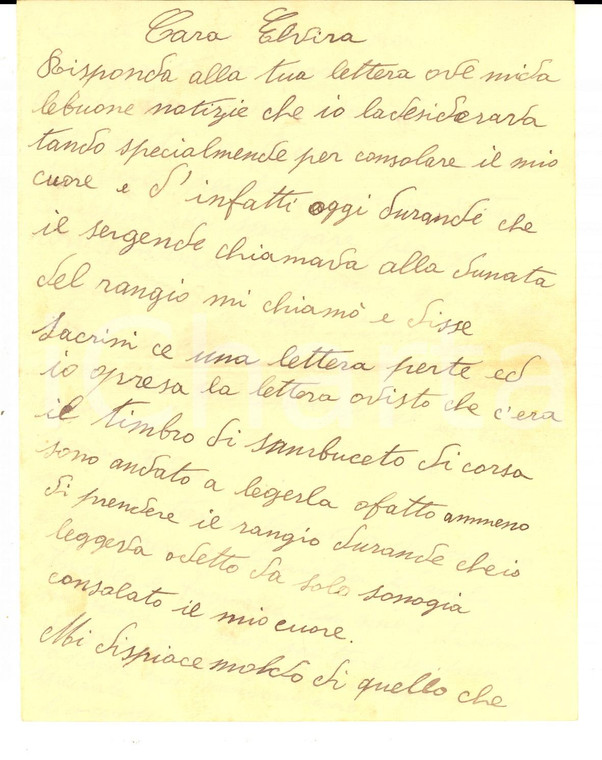 Cara Elvira
Risponda alla tua lettera ove mida
lebuone notizie che io ladesiderava
tando specialmende per consolare il mio
cuore e d'infatti oggi durande che
il sergende chiamava alla dunata
del rangio mi chiamò e disse
Sacrini ce una lettera perte ed
io opresa la lettera ovisto che c'era
il timbro di Sambuceto di corsa
sono andato a legerla ofatto ammeno
di prendere il rangio durande cheio
leggeva odetto da solo sonogia
consolato il mio cuore.
Mi dispiace moldo di quello che